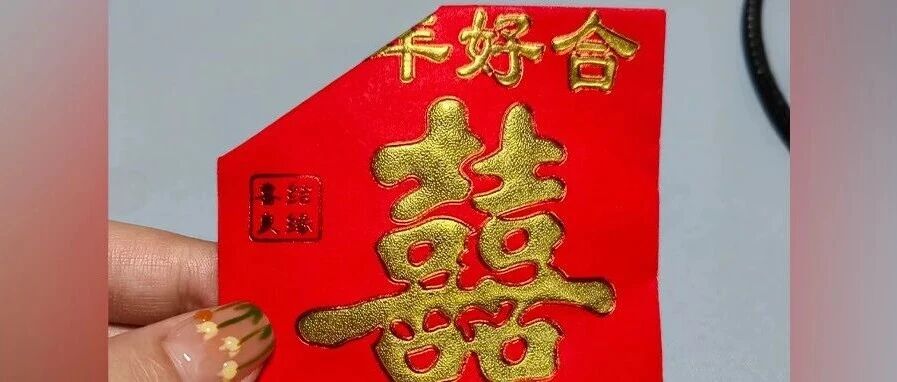 年好合
囍
喜结
良缘